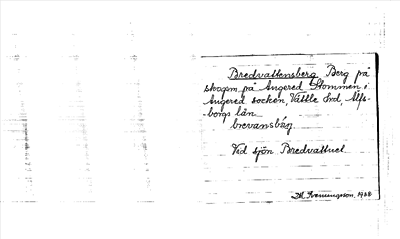 Bredvattensberg Berg på
skogen på Angered Stommen i
Angered socken, Vättle hrd, Älfs-
borgs län
brevansbärj
Vid sjön Bredvattnet
1928